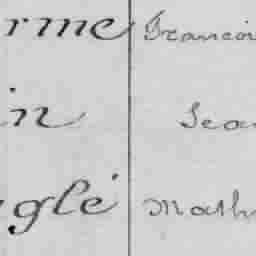 rme Francoi
in Jea
glé Math